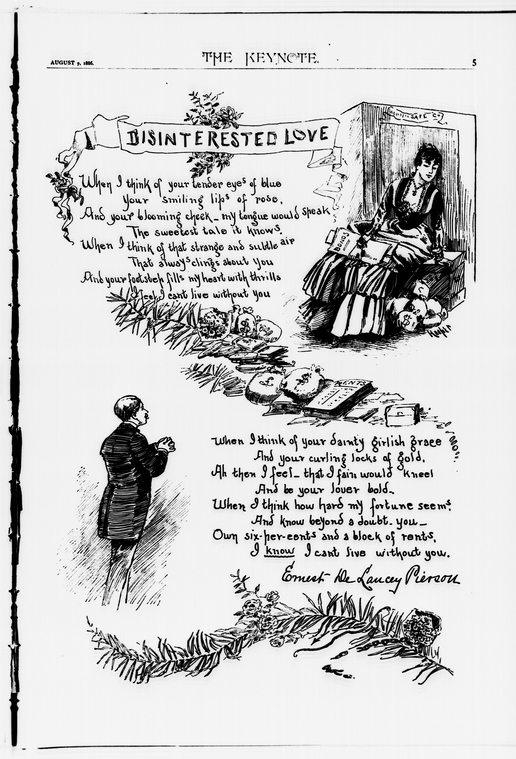 AUGUST 7, 1886.
THE KEYNOTE.
5
DISINTERESTED LOVE
When I think of your tender eyes of blue
Your smiling lips of rose,
And your blooming cheek – my tongue would speak
The sweetest tale it knows.
When I think of that strange and subtle air
That always clings about you
And your footstep fills my heart with thrills
I feel I cant live without you
BONDS
$
$
$
RENTS
When I think of your dainty girlish grace
And your curling locks of gold,
Ah then I feel – that I fain would kneel
And be your lover bold –
When I think how hard my fortune seems
And know beyond a doubt – you –
Own six-per-cents and a block of rents,
I know I cant live without you.
Ernest De Lancey Pierson